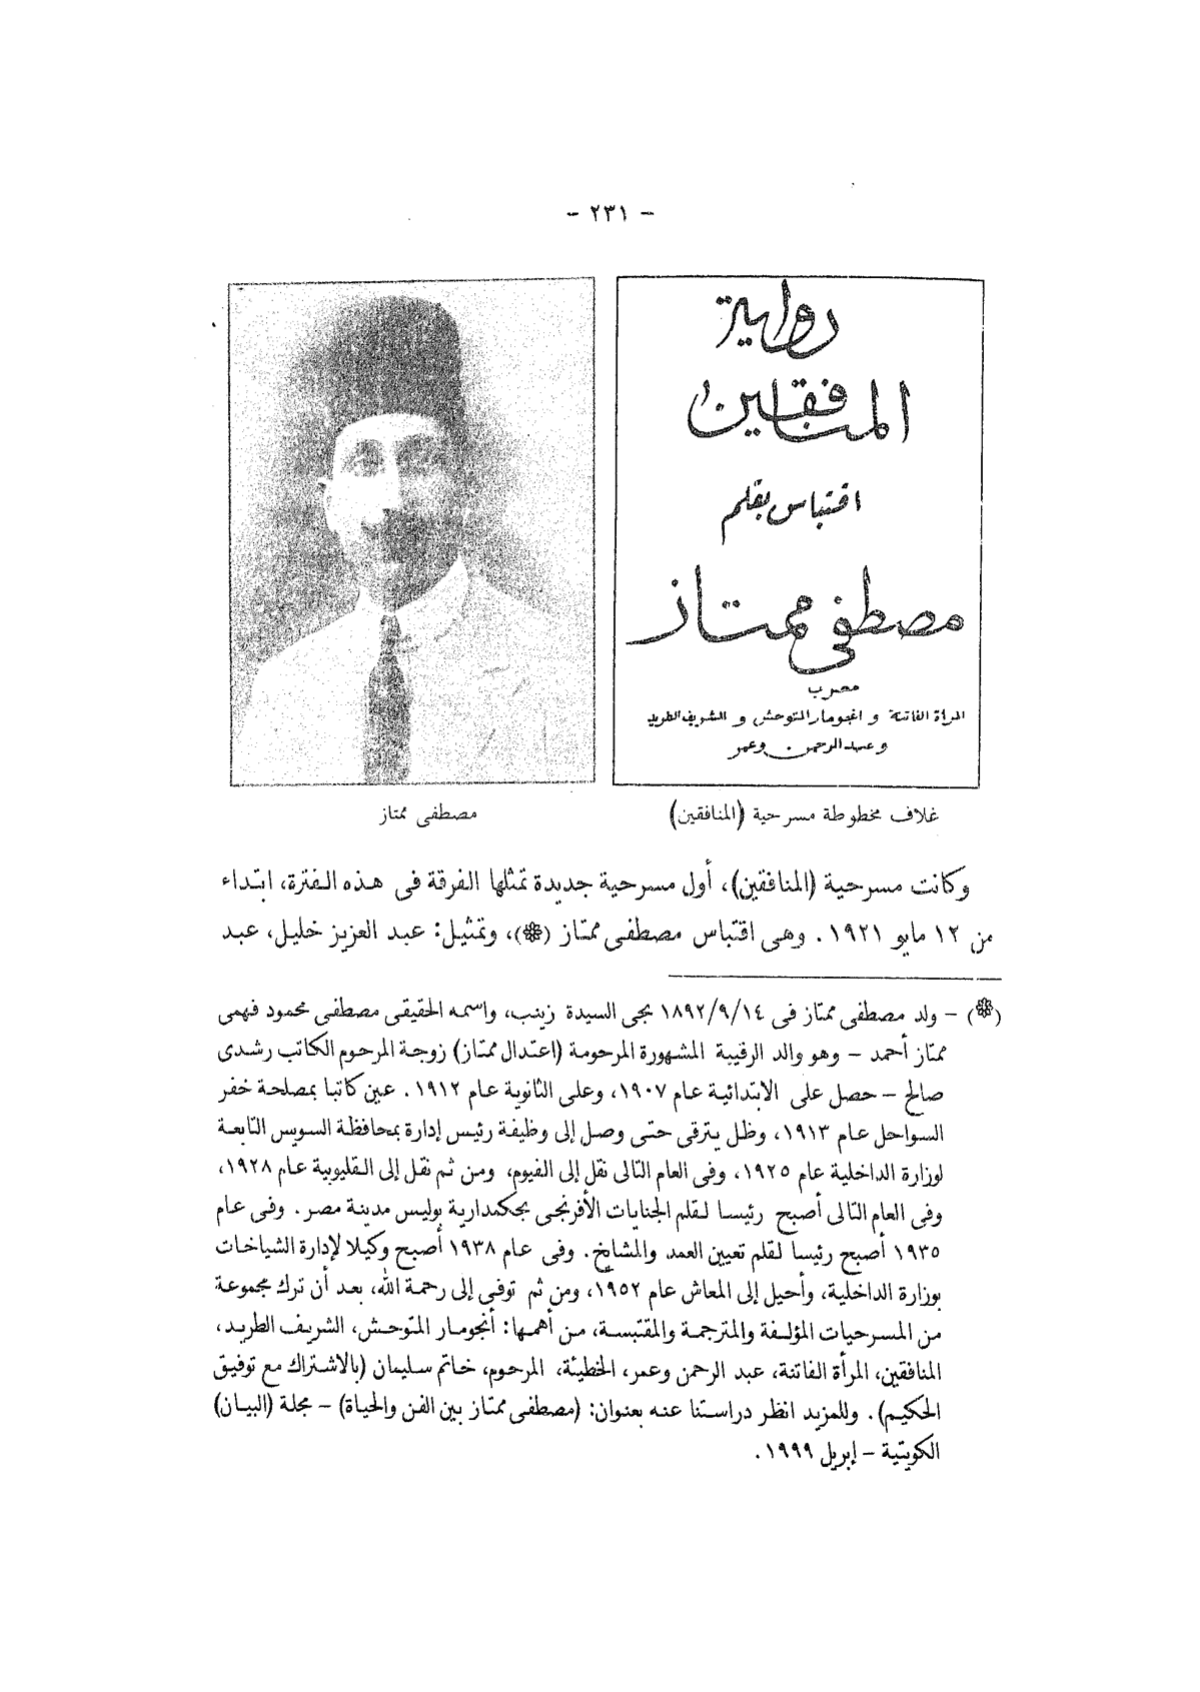 - ٢٣١ -
رواية
المنافقين
اقتباس بقلم
مصطفى ممتاز
معرب
المرأة الفاتنة و انجومار المتوحش و الشريف الطريد
و عبد الرحمن وعمر
غلاف مخطوطة مسرحية (المنافقين)
مصطفى ممتاز
وكانت مسرحية (المنافقين)، أول مسرحية جديدة تمثلها الفرقة فى هذه الفترة، ابتداء
من ١٢ مايو ١٩٢١. وهى اقتباس مصطفى ممتاز (❁)، وتمثيل: عبد العزيز خليل، عبد
(❁) - ولد مصطفى ممتاز فى ١٨٩٢/٩/١٤ بحى السيدة زينب، واسمه الحقيقى مصطفى محمود فهمى
ممتاز أحمد - وهو والد الرقيبة المشهورة المرحومة (اعتدال ممتاز) زوجة المرحوم الكاتب رشدى
صالح - حصل على الابتدائية عام ١٩٠٧، وعلى الثانوية عام ١٩١٢. عين كاتبا بمصلحة خفر
السواحل عام ١٩١٣، وظل يترقى حتى وصل إلى وظيفة رئيس إدارة بمحافظة السويس التابعة
لوزارة الداخلية عام ١٩٢٥، وفى العام التالى نقل إلى الفيوم، ومن ثم نقل إلى القليوبية عام ١٩٢٨،
وفى العام التالى أصبح رئيسا لقلم الجنايات الأفرنجى بحكمدارية بوليس مدينة مصر. وفى عام
١٩٣٥ أصبح رئيسا لقلم تعيين العمد والمشايخ. وفى عام ١٩٣٨ أصبح وكيلا لإدارة الشياخات
بوزارة الداخلية، وأحيل إلى المعاش عام ١٩٥٢، ومن ثم توفى إلى رحمة الله، بعد أن ترك مجموعة
من المسرحيات المؤلفة والمترجمة والمقتبسة، من أهمها: أنجومار المتوحش، الشريف الطريد،
المنافقين، المرأة الفاتنة، عبد الرحمن وعمر، الخطيئة، المرحوم، خاتم سليمان (بالاشتراك مع توفيق
الحكيم). وللمزيد انظر دراستنا عنه بعنوان: (مصطفى ممتاز بين الفن والحياة) - مجلة (البيان)
الكويتية - إبريل ١٩٩٩.